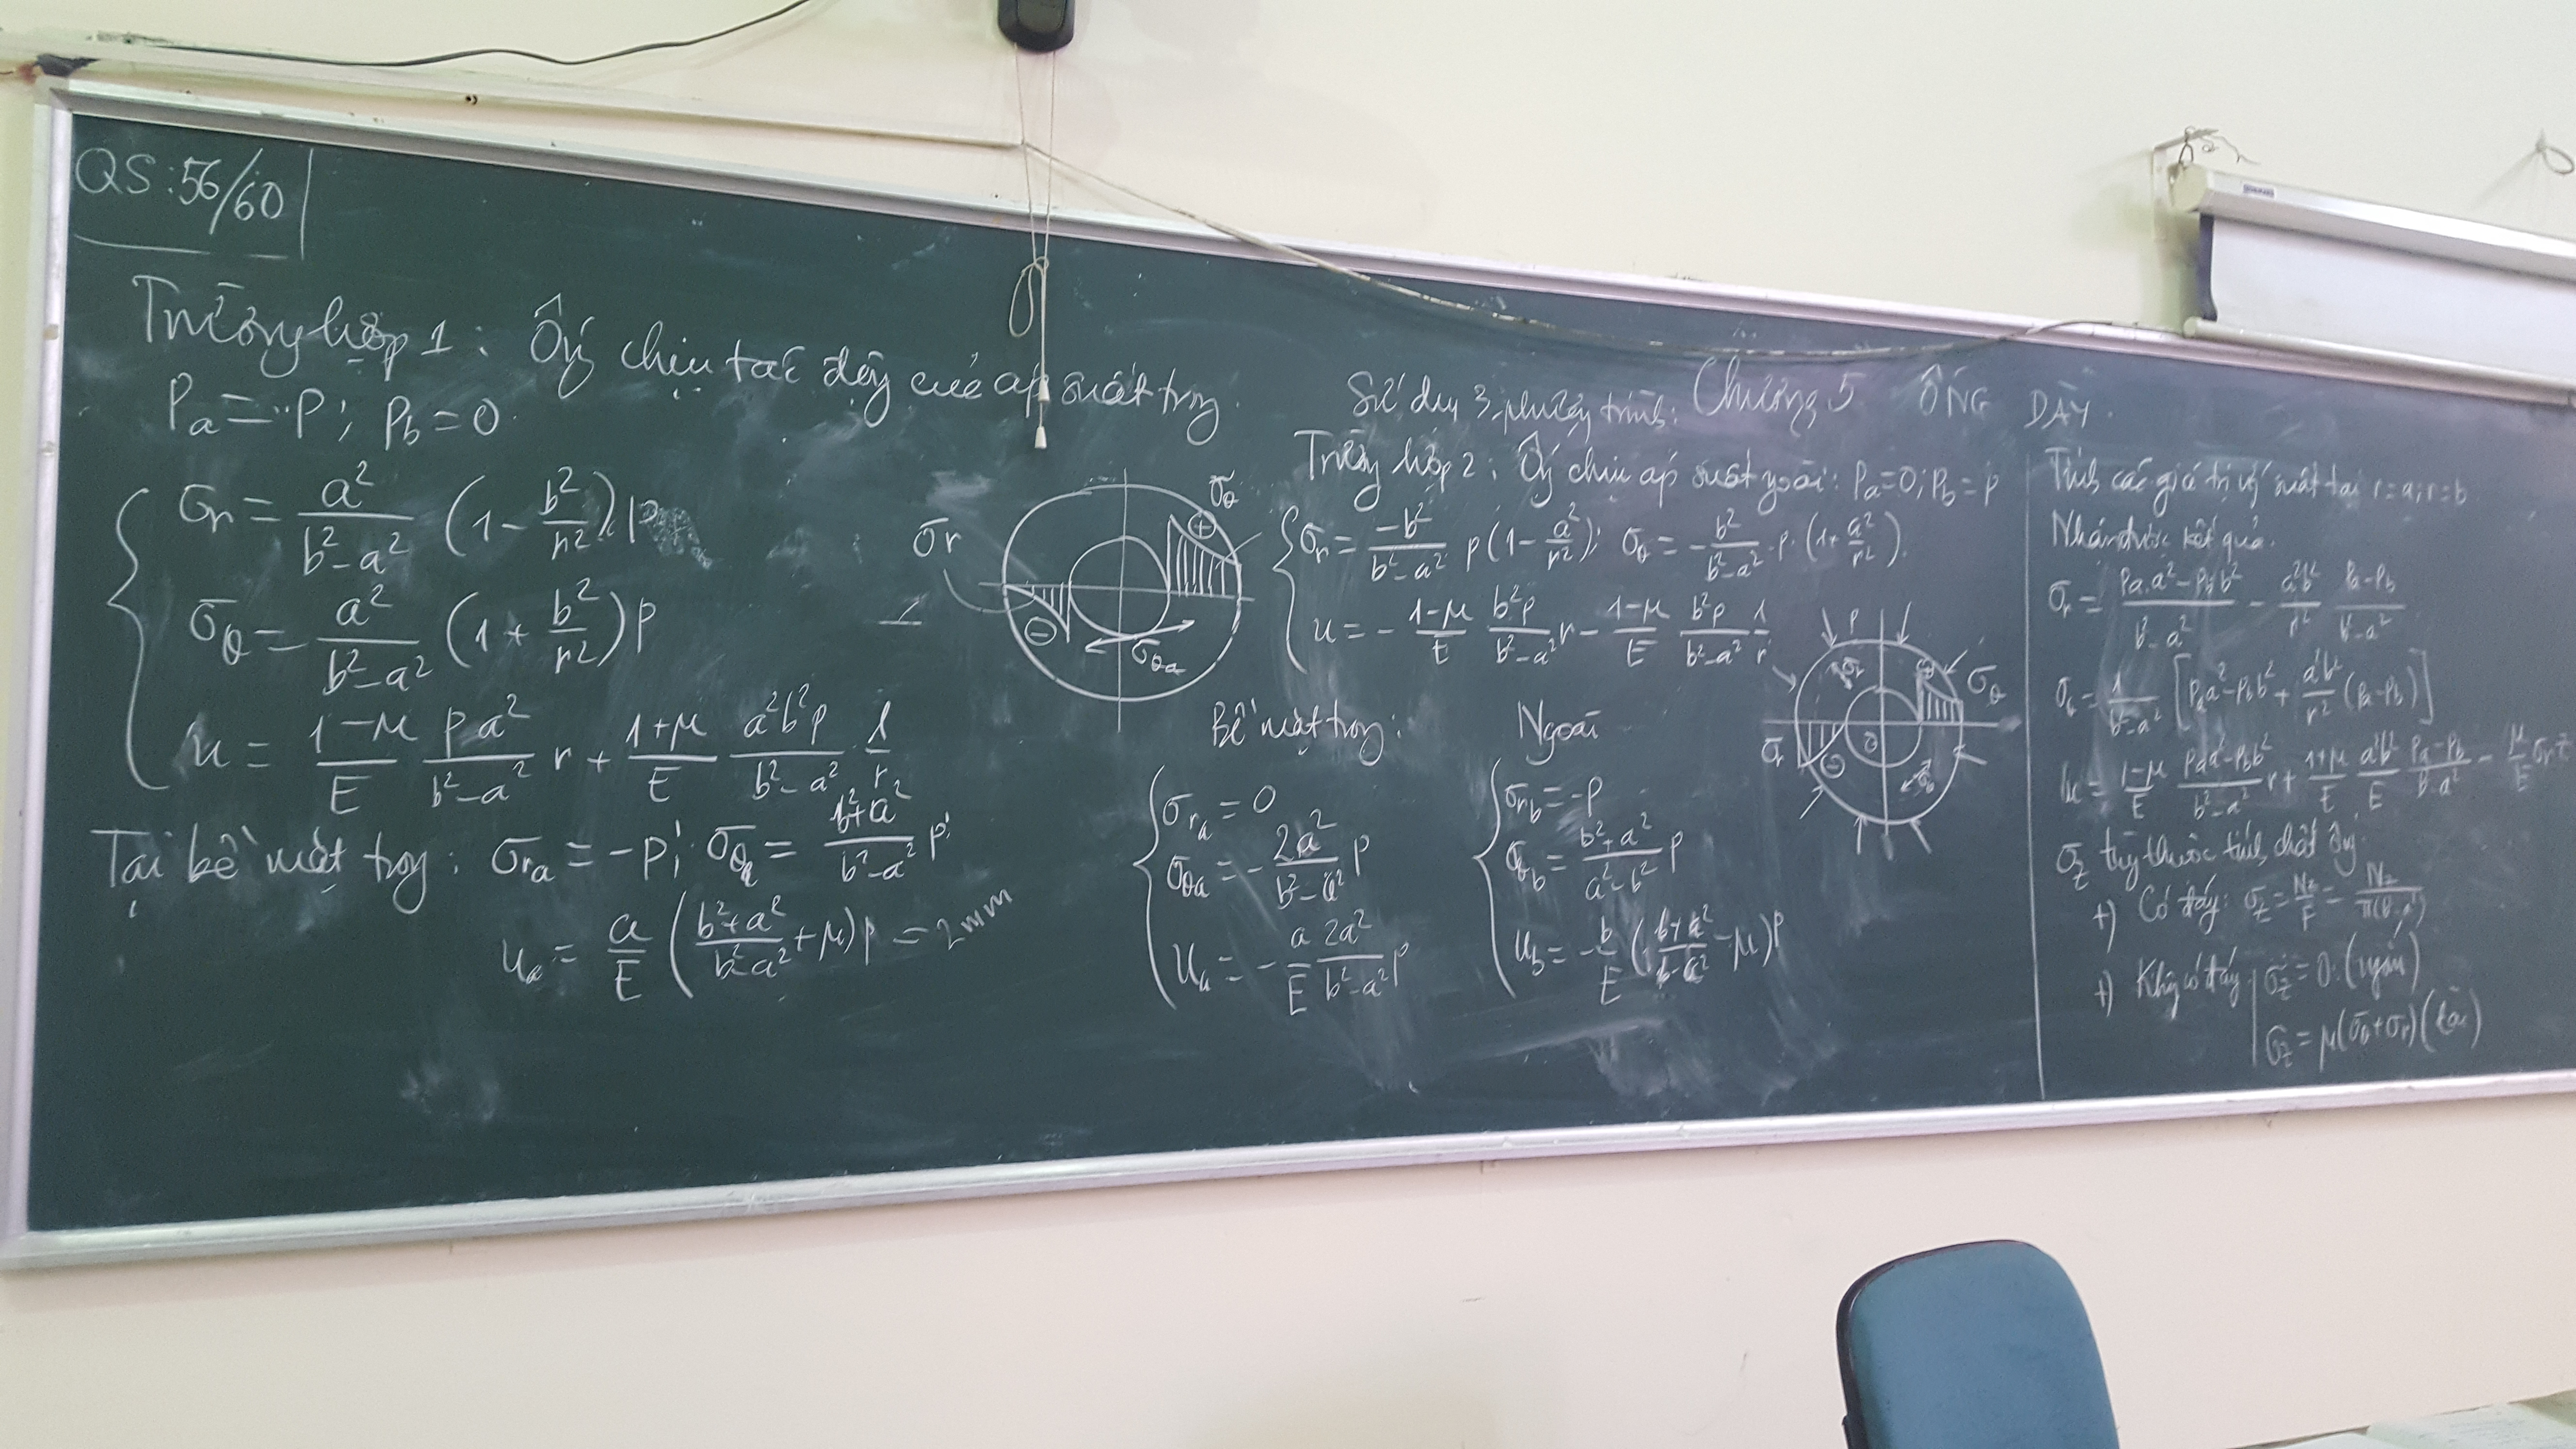 QS: 56/60
Trường hợp 1: Ống chịu tác động của áp suất trong.
Pa = P; Pb = 0.
σr = a²/(b²-a²) (1 - b²/r²).P
σθ = a²/(b²-a²) (1 + b²/r²) P
u = (1-μ)/E Pa²/(b²-a²) r + (1+μ)/E a²b²P/(b²-a²) · 1/r
Tại bề mặt trong: σra = -P; σθa = (b²+a²)/(b²-a²) P;
ua = a/E ((b²+a²)/(b²-a²) + μ) P = 2mm
σr
σθ
+
-
σθa
Chương 5 ỐNG DÀY.
Sử dụng 3 phương trình:
Trường hợp 2: Ống chịu áp suất ngoài: Pa=0; Pb = P
σr = -b²/(b²-a²) P(1 - a²/r²); σθ = -b²/(b²-a²) · P · (1 + a²/r²).
u = - (1-μ)/E b²P/(b²-a²) r - (1-μ)/E b²P/(b²-a²) 1/r
P
σθ
σr
-
Bề mặt trong:
σra = 0
σθa = - 2a²/(b²-a²) P
ua = - a/E 2a²/(b²-a²) P
Ngoài
σrb = -P
σθb = (b²+a²)/(a²-b²) P
ub = - b/E ((b²+a²)/(b²-a²) - μ) P
Tính các giá trị ứng suất tại r=a; r=b
Nhận được kết quả.
σr = (Pa.a² - Pb b²)/(b²-a²) - a²b²/r² (Pa-Pb)/(b²-a²)
σθ = 1/(b²-a²) [Pa a² - Pb b² + a²b²/r² (Pa-Pb)]
u = (1-μ)/E (Pa a² - Pb b²)/(b²-a²) r + (1+μ)/E a²b²/E (Pa-Pb)/(b²-a²) - μ/E σz r
σz tùy thuộc tính chất ống.
+) Có đáy: σz = Nz/F = Nz/π(b²-a²)
+) Không có đáy σz = 0. (ngắn)
σz = μ(σθ+σr) (dài)